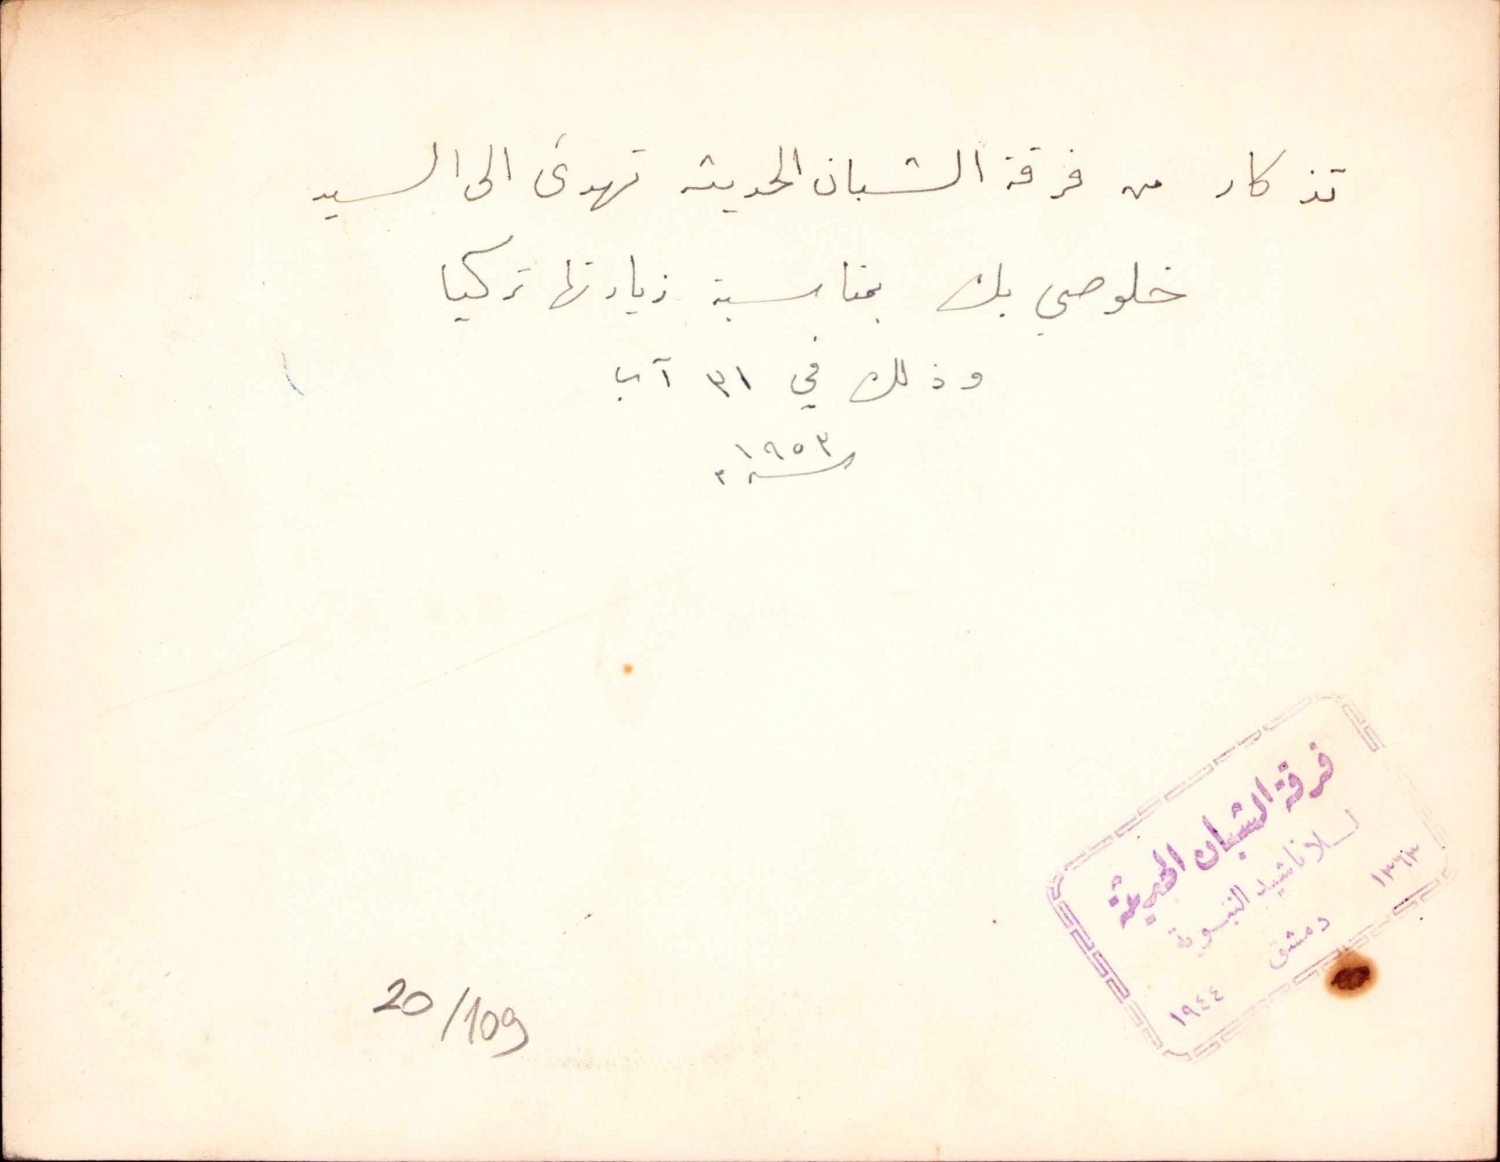 تذكار من فرقة الشبان الحديثه تهدى الى السيد
خلوصي بك بمناسبة زيارتها تركيا
وذلك في ٣١ آب
سنة ١٩٥٣ م
فرقة الشبان الحديثة
للاناشيد النبوية
دمشق
١٣٦٣
١٩٤٤
20/109